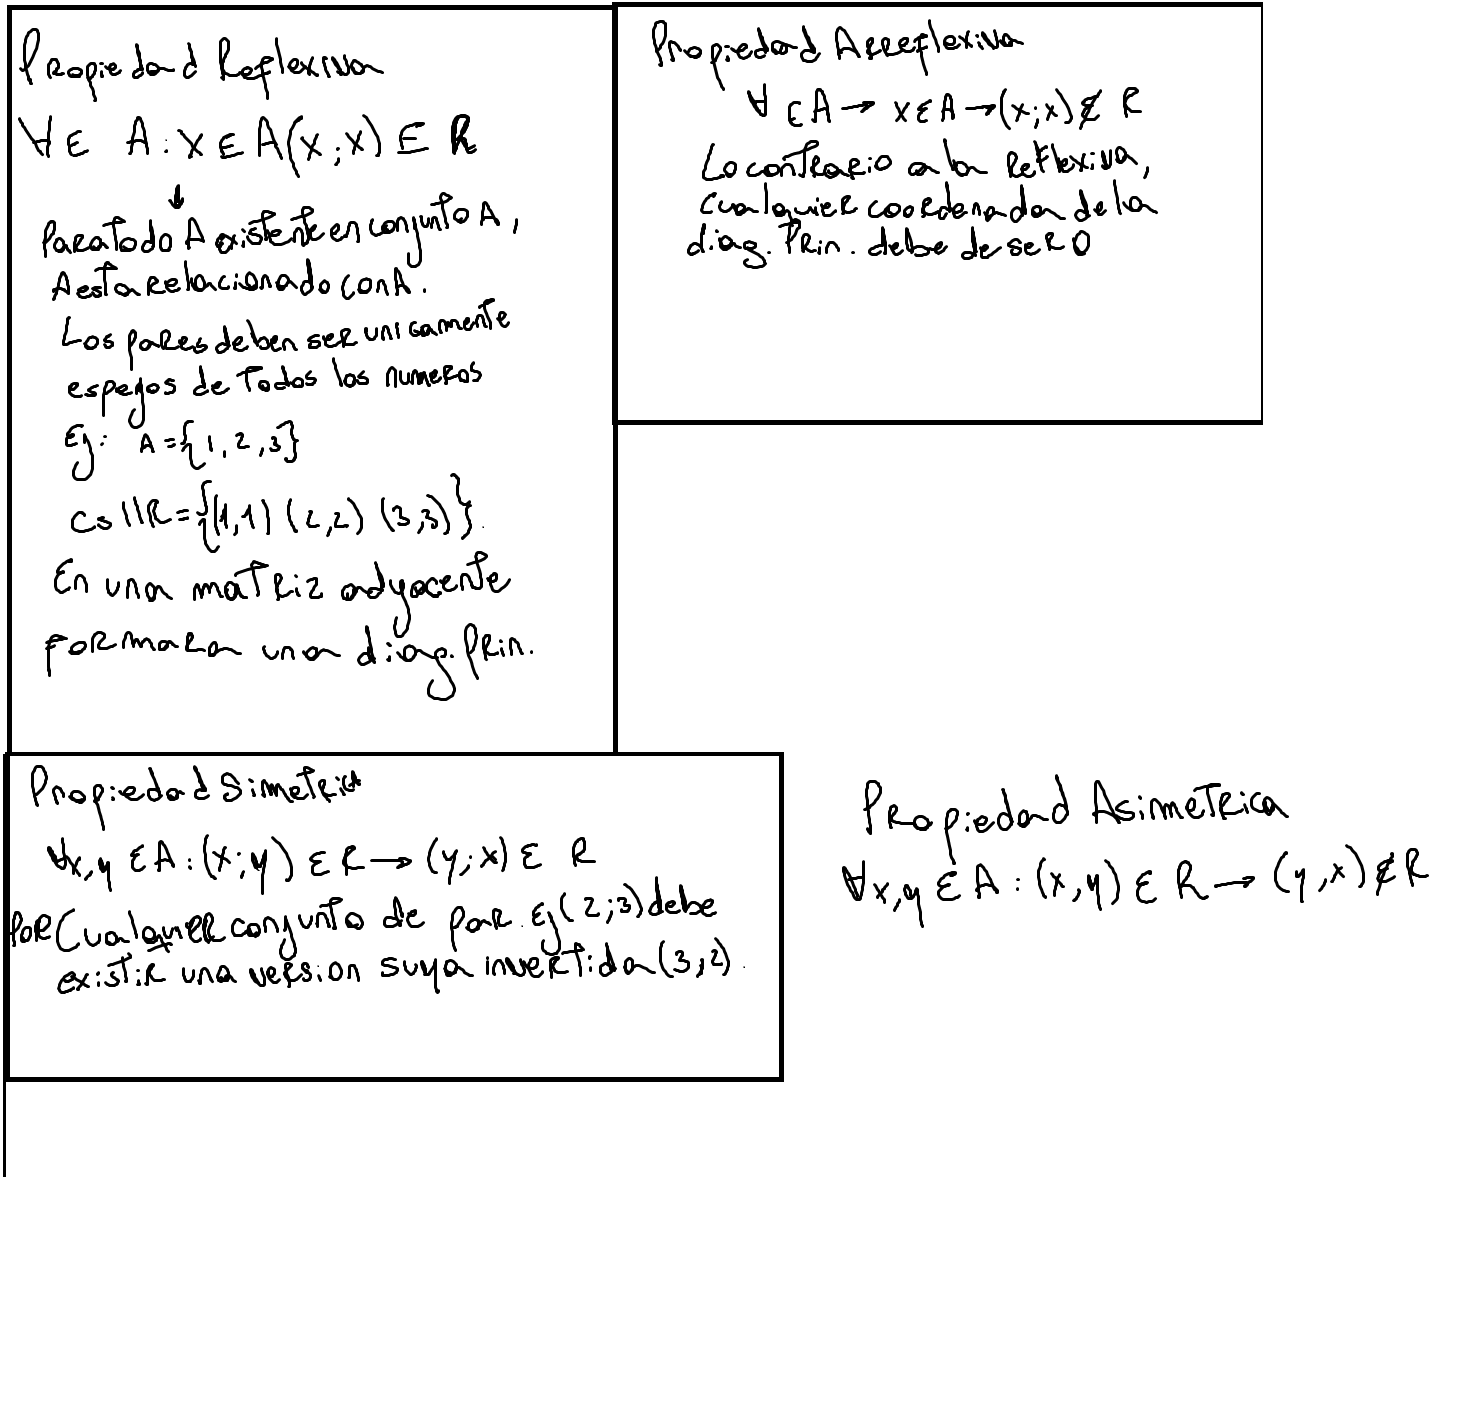 Propiedad Reflexiva
∀ ∈ A : x ∈ A (x ; x) ∈ R
↓
Para todo A existente en conjunto A,
A esta relacionado con A.
Los pares deben ser unicamente
espejos de todos los numeros
Ej: A = {1, 2, 3}
R = {(1,1) (2,2) (3,3)}.
En una matriz adyacente
formara una diag. Prin.
Propiedad Arreflexiva
∀ ∈ A → x ∈ A → (x ; x) ∉ R
Lo contrario a la Reflexiva,
cualquier coordenada de la
diag. Prin. debe de ser 0
Propiedad Simetrica
∀x,y ∈ A : (x ; y) ∈ R → (y ; x) ∈ R
Por Cualquier conjunto de par. Ej (2 ; 3) debe
existir una version suya invertida (3 ; 2).
Propiedad Asimetrica
∀x,y ∈ A : (x , y) ∈ R → (y , x) ∉ R